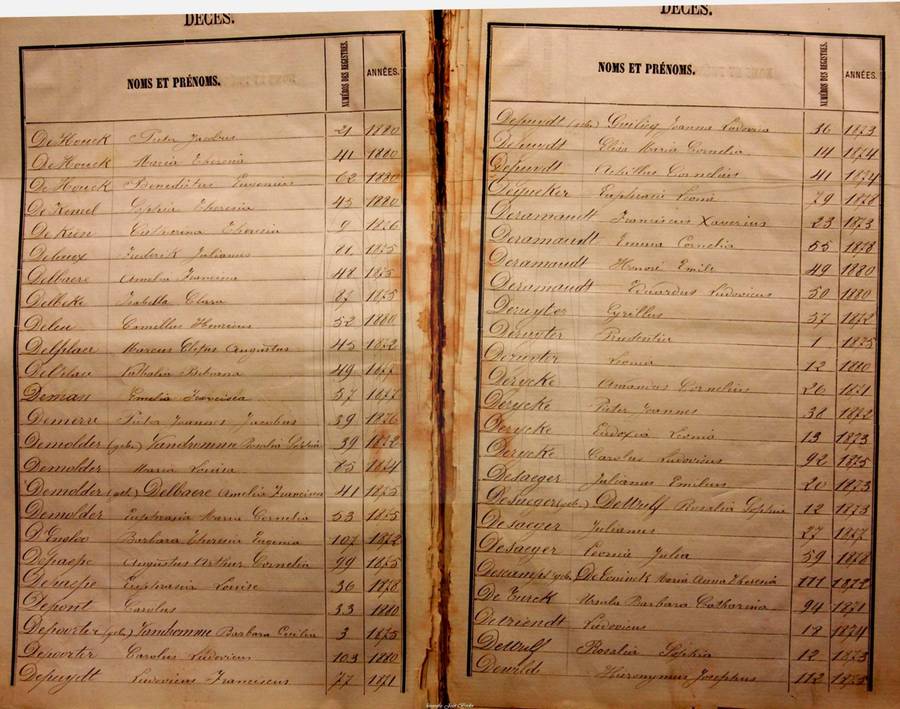 DÉCÈS.
NOMS ET PRÉNOMS. NUMÉROS DES REGISTRES. ANNÉES.
De Houck Pieter Jacobus 21 1880
De Houck Maria Theresia 41 1880
De Houck Benedictus Eugenius 62 1880
Sophia Theresia 45 1880
De Catharina Theresia 9 1876
Frederik Julianus 1875
Delbaere Amelia Francisca 48 1875
Delbeke Isabella Clara 87 1875
Deleu Camillus Henricus 52 1880
Delplace Marcus Augustus 45 1872
Nathalia 49 1877
Deman Emelia Francisca 57 1877
Demerre Pieter Joannes Jacobus 39 1876
Demolder Vandromme Rosalia Sophia 39 1872
Demolder Maria Louisa 85 1874
Demolder Delbaere Amelia Francisca 41 1875
Demolder Euphrasia Maria Cornelia 53 1875
Barbara Theresia Eugenia 107 1872
Depaepe Augustus Arthur Cornelia 99 1875
Depaepe Euphrasia Louise 36 1878
Depont Carolus 33 1880
Depoorter Vandromme Barbara Cecilia 3 1875
Depoorter Carolus Ludovicus 103 1880
Depuydt Ludovicus Franciscus 77 1871
DÉCÈS.
NOMS ET PRÉNOMS. NUMÉROS DES REGISTRES. ANNÉES.
Depuydt Joanna Ludovica 36 1873
Depuydt Elisa Maria Cornelia 14 1874
Depuydt Achillus Cornelius 41 1874
Euphrasie Leonie 79 1878
Deramaudt Franciscus Xaverius 23 1873
Deramaudt Emma Cornelia 55 1878
Deramaudt Honoré Emile 49 1880
Deramaudt Eduardus Ludovicus 50 1880
Deruyter Cyrillus 57 1872
Deruyter Prudentia 1 1875
Deruyter Leonia 12 1880
Derycke Amandus Cornelius 26 1871
Derycke Pieter Joannes 38 1872
Derycke Eudoxia Leonia 13 1873
Derycke Carolus Ludovicus 92 1875
Desaeger Julianus Emilius 20 1873
Desaeger Dettruff Rosalia Sophia 12 1873
Desaeger Julianus 27
Desaeger Leonia Julia 59 1878
Descamps Maria Anna Theresia 111 1872
Ursula Barbara Catharina 94 1871
Detriendt Ludovicus 1874
Dettruff Rosalia Sophia 12 1873
Dewild Hieronymus Josephus 112 1873